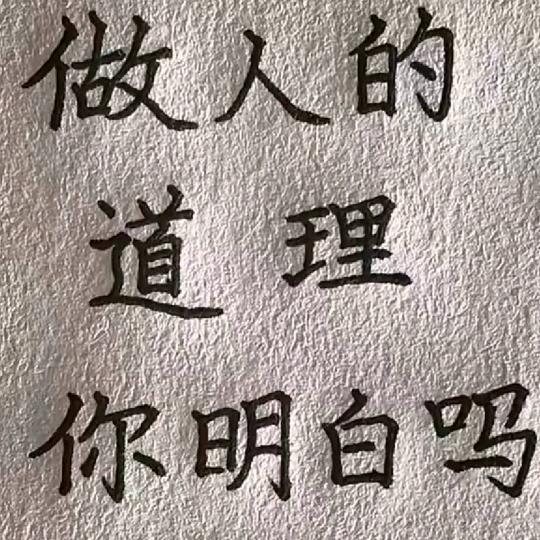 做人的
道理
你明白吗